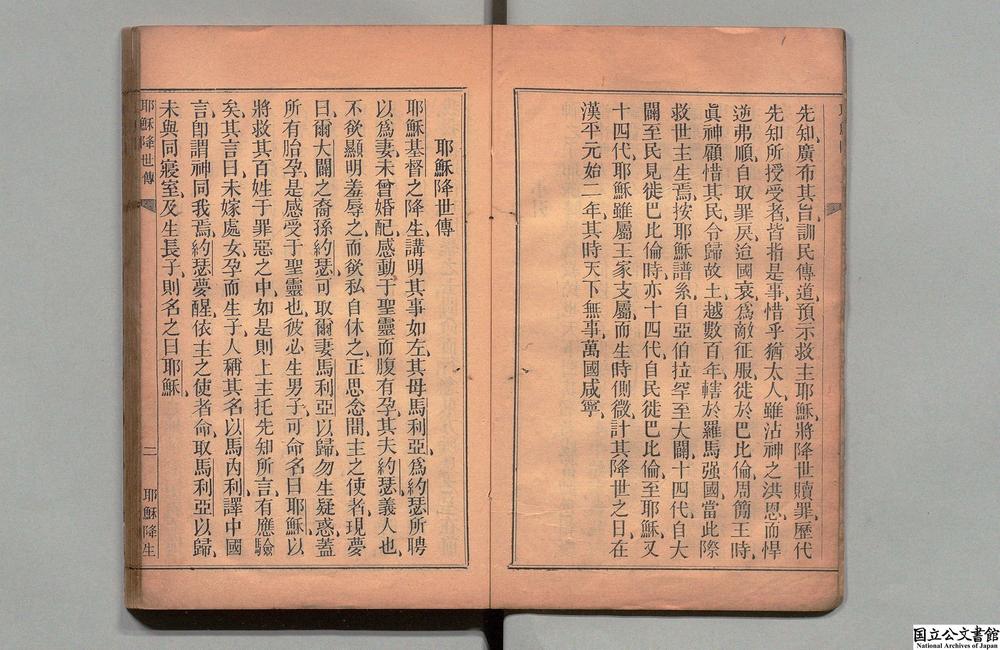 先知廣布其旨訓民傳道預示救主耶穌將降世贖罪歷代
先知所授受者皆指是事惜乎猶太人雖沾神之洪恩而悍
逆弗順自取罪戾迨國衰爲敵征服徙於巴比倫周簡王時
眞神顧惜其民令歸故土越數百年轄於羅馬强國當此際
救世主生焉按耶穌譜系自亞伯拉罕至大闢十四代自大
闢至民見徙巴比倫時亦十四代自民徙巴比倫至耶穌又
十四代耶穌雖屬王家支屬而生時側微計其降世之日在
漢平元始二年其時天下無事萬國咸寧
耶穌降世傳
耶穌基督之降生講明其事如左其母馬利亞爲約瑟所聘
以爲妻未曾婚配感動于聖靈而腹有孕其夫約瑟義人也
不欲顯明羞辱之而欲私自休之正思念間主之使者現夢
曰爾大闢之裔孫約瑟可取爾妻馬利亞以歸勿生疑惑蓋
所有胎孕是感受于聖靈也彼必生男子可命名曰耶穌以
將救其百姓于罪惡之中如是則上主托先知所言有應驗
矣其言曰未嫁處女孕而生子人稱其名以馬內利譯中國
言卽謂神同我焉約瑟夢醒依主之使者命取馬利亞以歸
未與同寢室及生長子則名之曰耶穌
耶穌降世傳 二 耶穌降生
国立公文書館
National Archives of Japan